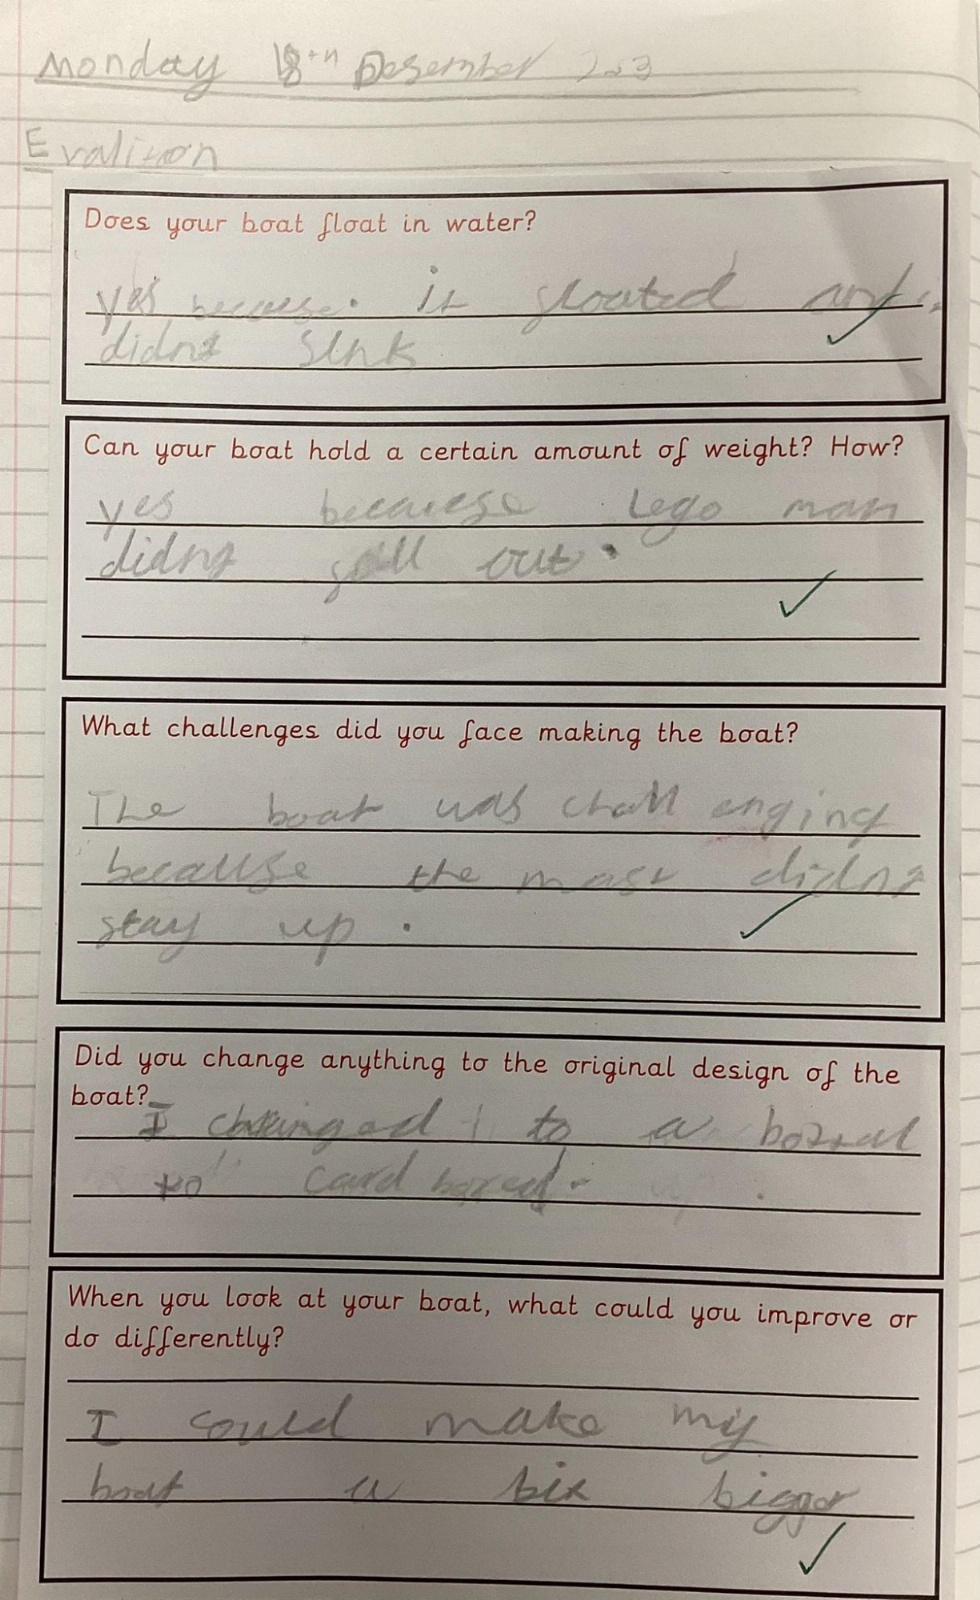 Monday 18th Desember 2023
Evalition
Does your boat float in water?
yes because. it floated and
didnt sink
Can your boat hold a certain amount of weight? How?
yes because Lego man
didnt fall out.
What challenges did you face making the boat?
The boat was chall enging
because the mast didnt
stay up.
Did you change anything to the original design of the
boat?
I to a
to card bored.
When you look at your boat, what could you improve or
do differently?
I could make my
boat a bit bigger